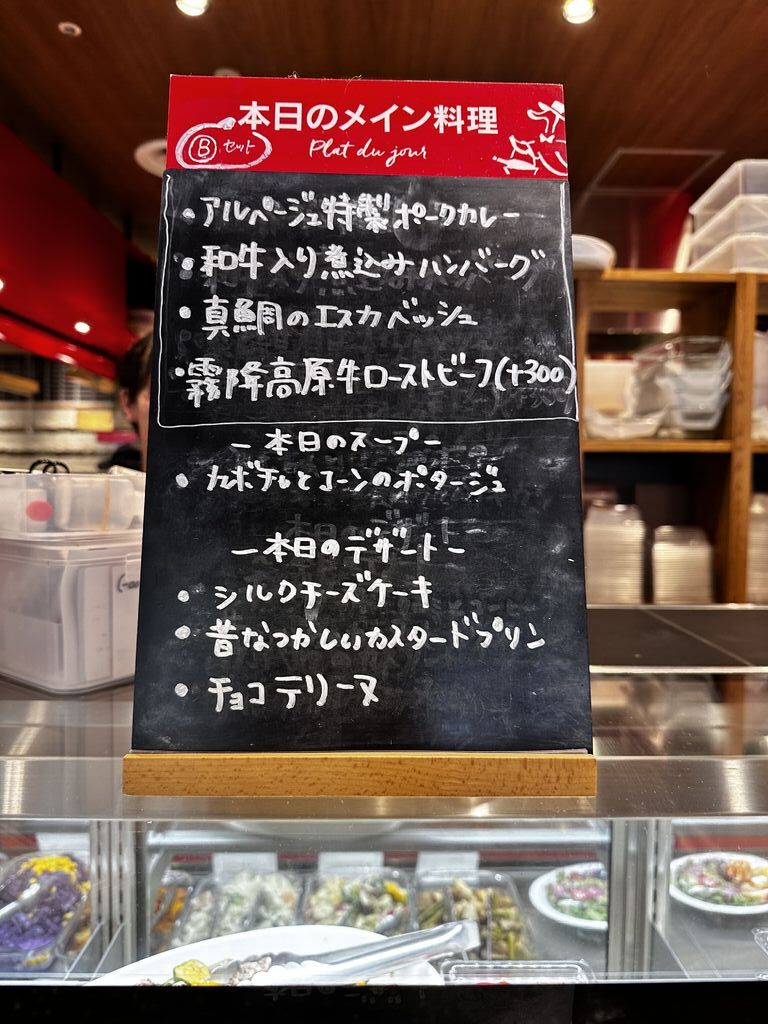 本日のメイン料理
Ⓑセット
Plat du jour
・アルページュ特製ポークカレー
・和牛入り煮込みハンバーグ
・真鯛のエスカベッシュ
・霧降高原牛ローストビーフ(+300)
ー本日のスープー
・カボチャとコーンのポタージュ
ー本日のデザートー
・シルクチーズケーキ
・昔なつかしいカスタードプリン
・チョコテリーヌ